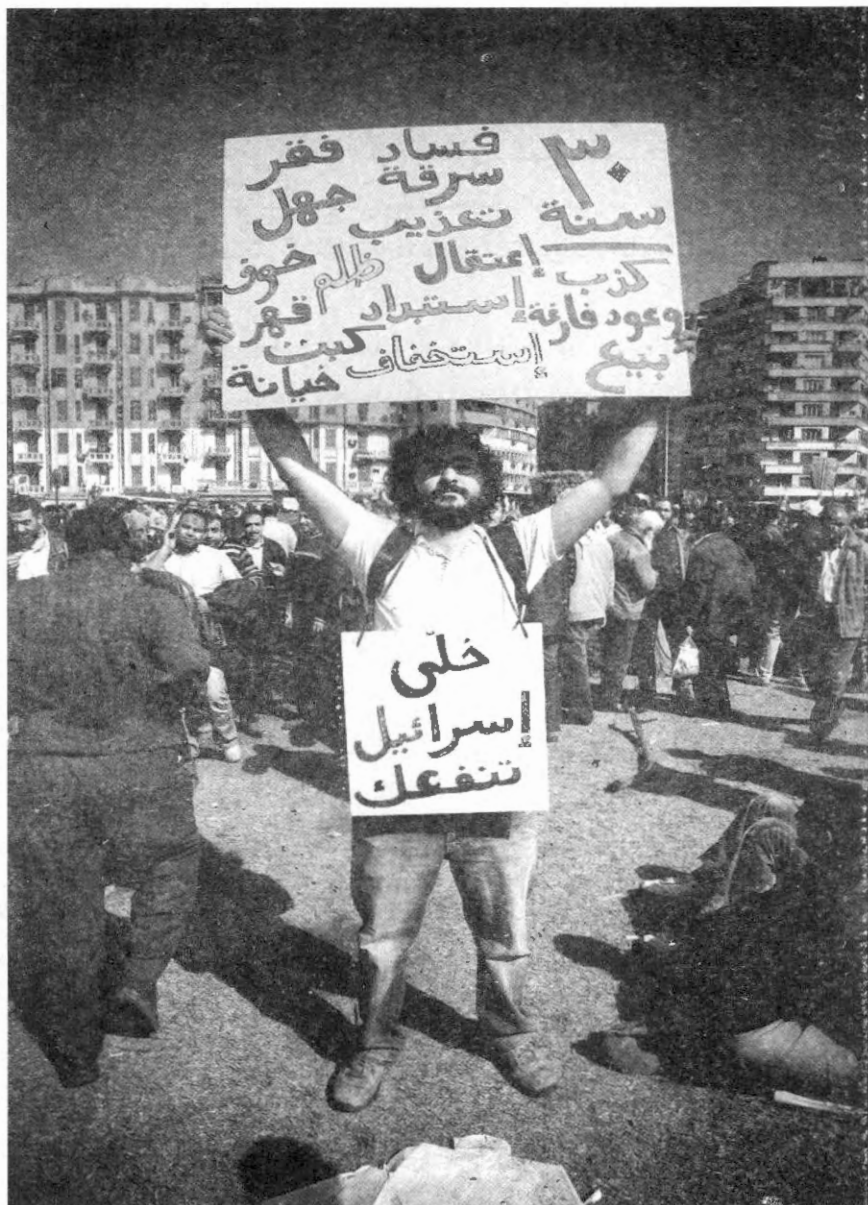 ٣٠ فساد فقر
سرقة جهل
سنة تعذيب خوف
كذب إعتقال ظلم
وعود فارغة إستبداد قهر
بيع إستخفاف كبت خيانة
خلّى
إسرائيل
تنفعك